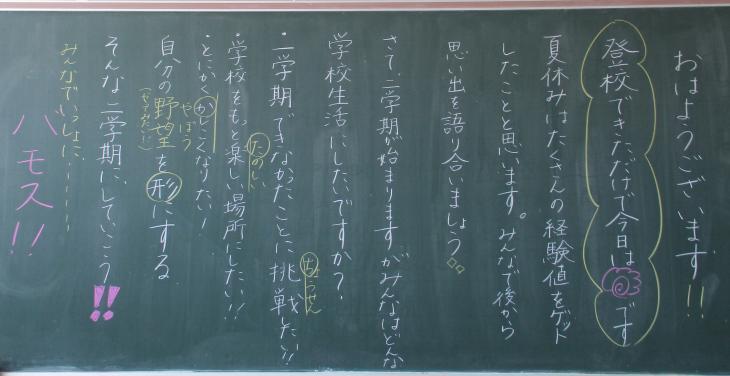 おはようございます!!
登校できただけで今日は です
夏休みはたくさんの経験値をゲット
したことと思います。みんなで後から
思い出を語り合いましょう
さて、二学期が始まりますがみんなはどんな
学校生活にしたいですか?
・一学期できなかったことに挑戦したい!!
ちょうせん
・学校をもっと楽しい場所にしたい!!
たのしい
・とにかくかしこくなりたい!
自分の野望を形にする
やぼう
そんな二学期にしていこう!!
みんなでいっしょに、ーーーーー
バモス!!